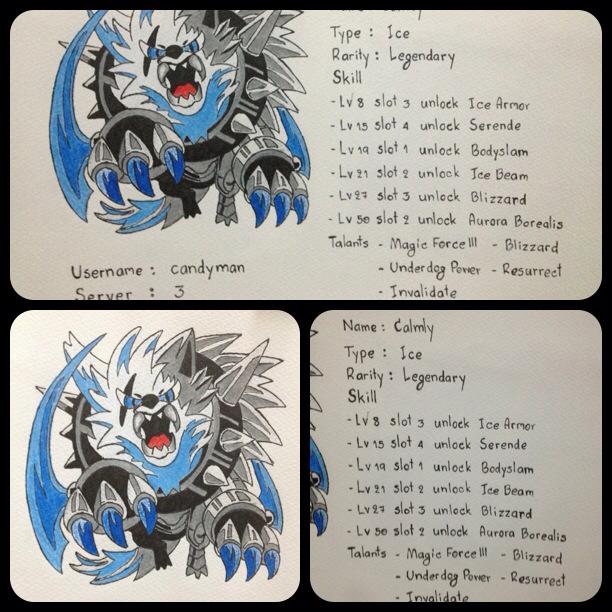 Type : Ice
Rarity : Legendary
Skill
- Lv 8 slot 3 unlock Ice Armor
- Lv 15 slot 4 unlock Serende
- Lv 19 slot 1 unlock Bodyslam
- Lv 21 slot 2 unlock Ice Beam
- Lv 27 slot 3 unlock Blizzard
- Lv 50 slot 2 unlock Aurora Borealis
Talants - Magic Force III - Blizzard
- Underdog Power - Resurrect
- Invalidate
Username : candyman
Server : 3
Name : Calmly
Type : Ice
Rarity : Legendary
Skill
- Lv 8 slot 3 unlock Ice Armor
- Lv 15 slot 4 unlock Serende
- Lv 19 slot 1 unlock Bodyslam
- Lv 21 slot 2 unlock Ice Beam
- Lv 27 slot 3 unlock Blizzard
- Lv 50 slot 2 unlock Aurora Borealis
Talants - Magic Force III - Blizzard
- Underdog Power - Resurrect
- Invalidate